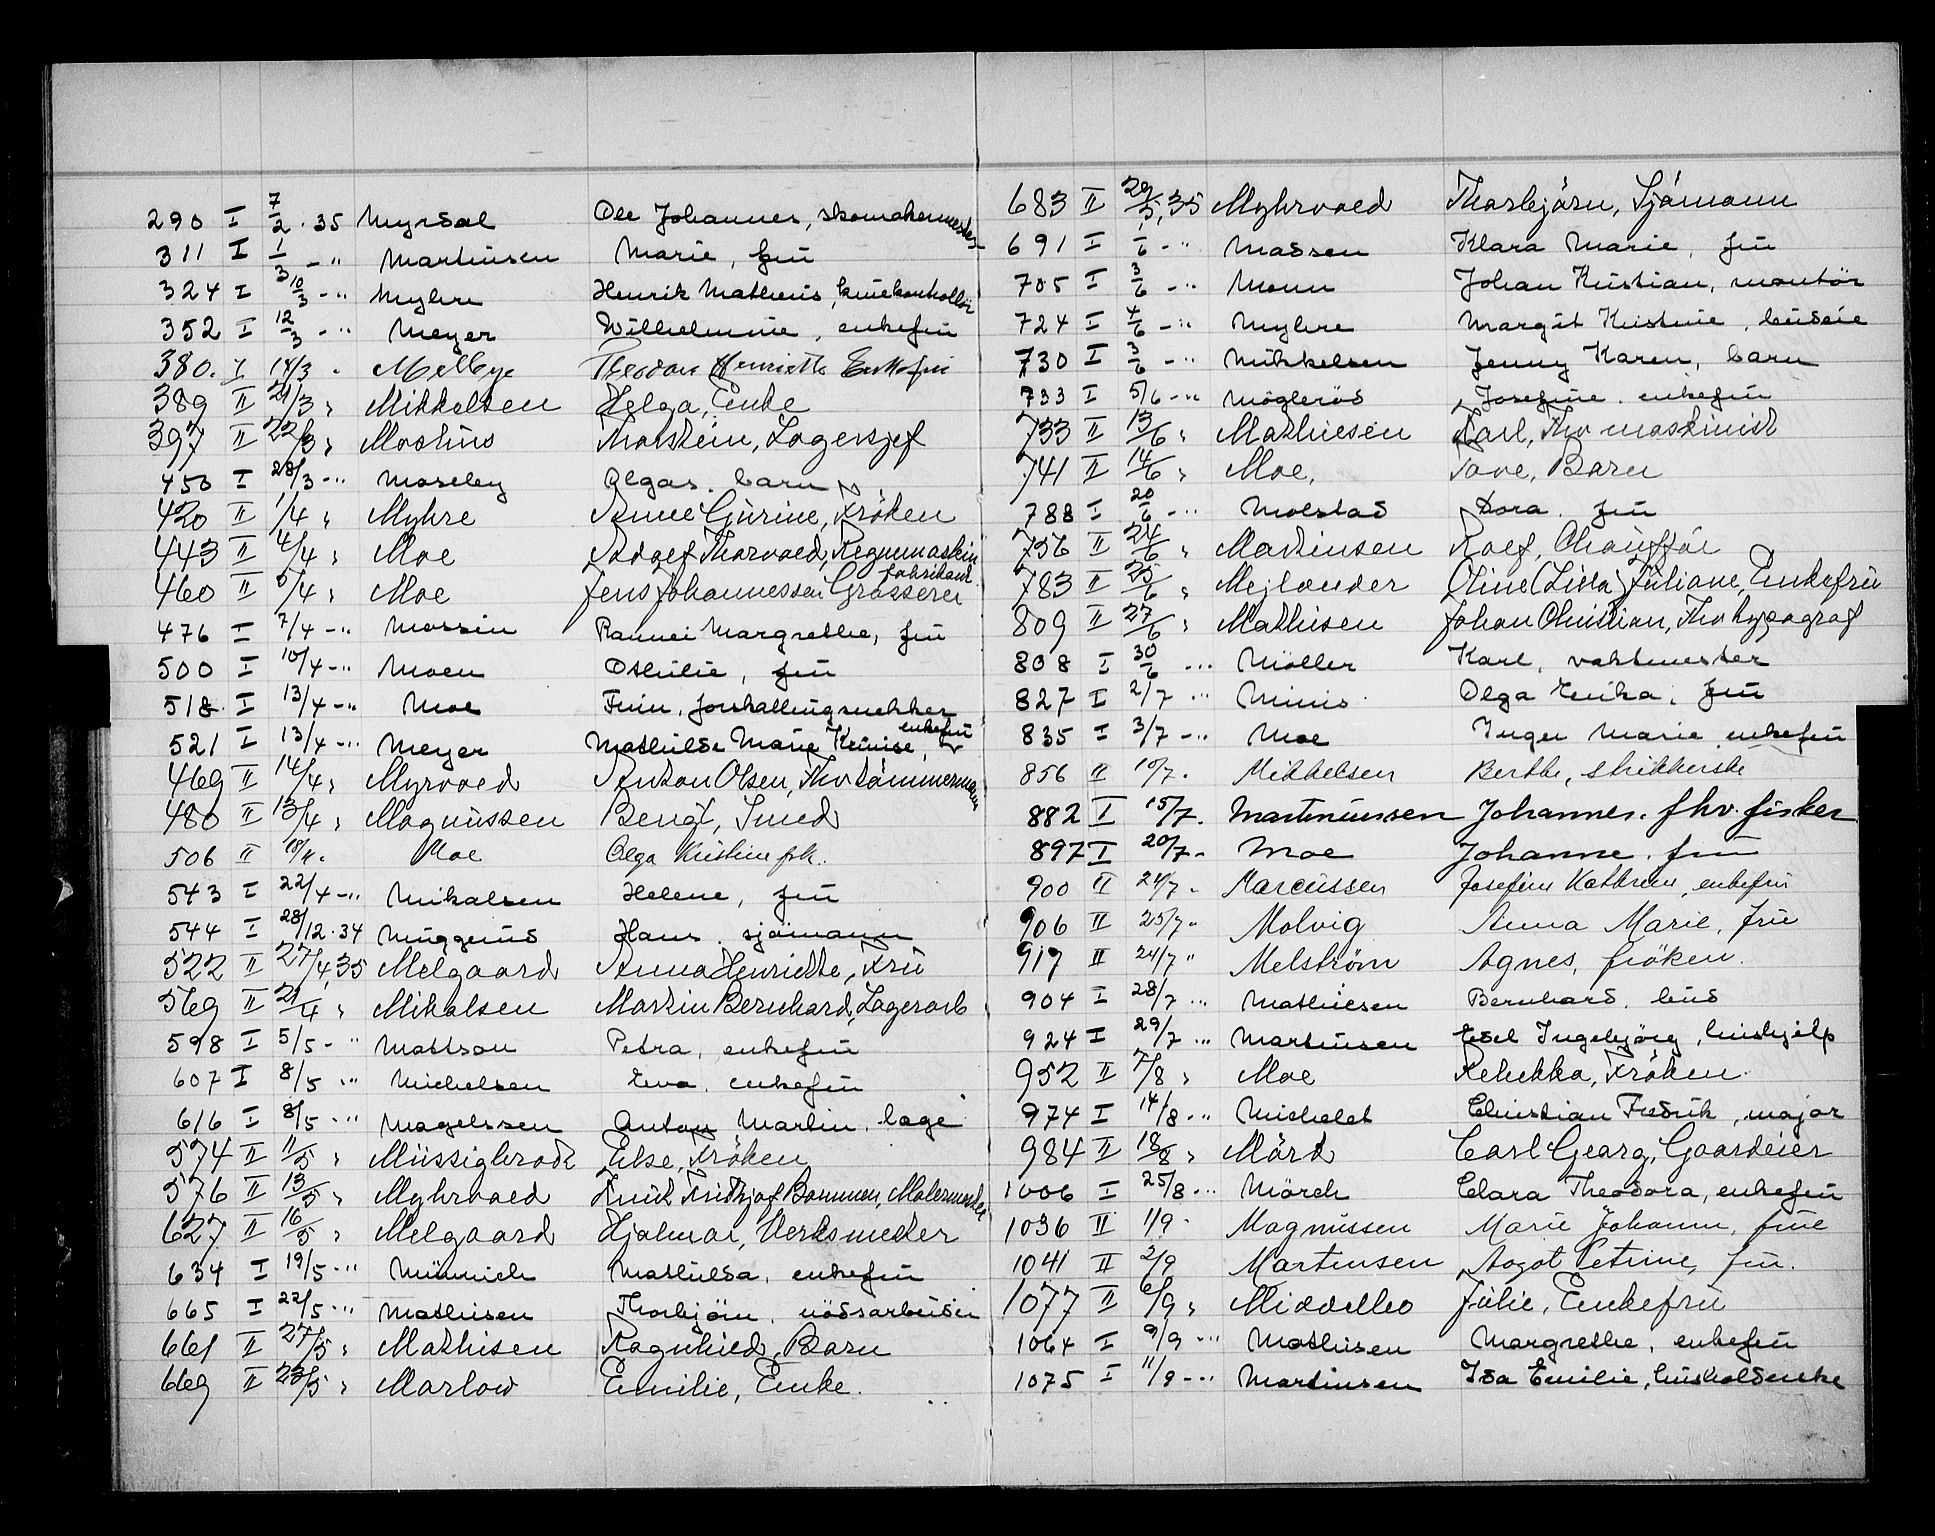 290 I 7/2 . 35 Myrdal Ole Johannes, skomakermester
311 I 1/3 - " Martinsen Marie, fru
324 I 10/3 - " Myhre Henrik Matheus, kinokontrollör
352 I 12/3 - " Meyer Wilhelmine, enkefru
380. I 14/3 " Melbye Theodora Henriette Enkefru
389 II 21/3 " Mikkelsen Helga, Enke
397 II 22/3 " Mostins Thorstein, Lagersjef
450 I 28/3 - " Moseby barn
420 II 1/4 " Myhre Anne Gurine, Fröken
443 II 4/4 " Moe Adolf Thorvald, Regnemaskinfabrikant.
460 II 5/4 " Moe Jens Johannessen Grosserer
476 I 7/4 - " Mossin Rannei Margrethe, fru
500 I 10/4 - " Moen Othilie, fru
518 I 13/4 - " Moe Finn, forskallingsnekker
521 I 13/4 - " Meyer Mathilde Marie enkefru
469 II 14/4 " Myrvold Anton Olsen, Fhv tömmermann
480 II 13/4 " Magnussen Bengt, Smed
506 II 18/4. Moe Olga Kristine frk.
543 I 22/4 - " Mikalsen Helene, fru
544 I 28/12 . 34 Muggerud Hans. sjömann
522 II 27/4, 35 Melgaard Anna Henriette, Fru
569 II 21/4 " Mikalsen Martin Bernhard, Lagerarb
598 I 5/5 - " Mattson Petra, enkefru
607 I 8/5 - " Michelsen Ewa, enkefru
616 I 8/5 - " Magelssen Anton Martin, lage
574 II 11/5 " Müssigbrodt Else, Fröken
576 II 13/5 " Myhrvold Knut Fridtjof Malermester
627 II 16/5 " Melgaard Hjalmar, Verksmester
634 I 19/5 - " Münnich Mathilda, enkefru
665 I 22/5 - " Mathisen Thorbjörn, nödsarbeider
661 II 27/5 " Mathisen Ragnhild, Barn
669 II 23/5 " Marlow Emilie, Enke.
683 II 29/5, 35 Myhrvold Thorbjörn, Sjömann
691 I 1/6 - " Massen Klara Marie, fru
705 I 3/6 - " Monn Johan Kristian, montör
724 I 4/6 - " Myhre Margit Kristine,
730 I 3/6 - " Mikkelsen Jenny Karen, barn
733 I 5/6 - " Mögleröd Josefine, enkefru
733 II 13/6 " Mathiesen Karl, Fhv maskinist
741 II 14/6 " Moe, Tove, Barn
788 I 20/6 - " Molstad Dora. fru
756 II 24/6 " Martinsen Rolf, Chaufför
783 II 25/6 " Mejlænder Oline (Lina) Juliane, Enkefru
809 II 27/6 " Mathisen Johan Christian, Fhv typograf
808 I 30/6 - " Möller Karl, vaktmester
827 I 2/7 - " Minis Olga Erika, fru
835 I 3/7 - " Moe Inger Marie enkefru
856 II 10/7. Mikkelsen Berthe, strikkerske
882 I 15/7. Martiniussen Johannes. fhv. fisker
897 I 20/7 - Moe Johanne. fru
900 II 24/7 - Marcussen Josefine Kathrine, enkefru
906 II 25/7 " Molvig Anna Marie, fru
917 II 24/7 " Melström Agnes, fröken.
904 I 28/7 - " Mathiesen Bernhard.
924 I 29/7 - " Martinsen Edel Ingebjörg, hushjelp
952 II 7/8 " Moe Rebekka, Fröken.
974 I 14/8 - " Michelet Christian Fredrik, major
984 II 18/8 " Mörd Carl Georg, Gaardeier
1006 I 25/8 - " Mörch Clara Theodora, enkefru
1036 II 1/9 - Magnussen Marie Johanne, frue
1041 II 2/9 Martinsen Aagot Petrine, fru.
1077 II 6/9 " Middelbo Julie, Enkefru
1064 I 9/9 - " Mathisen Margrethe, enkefru
1075 I 11/9 - " Martinsen Ida Emilie, husholderske